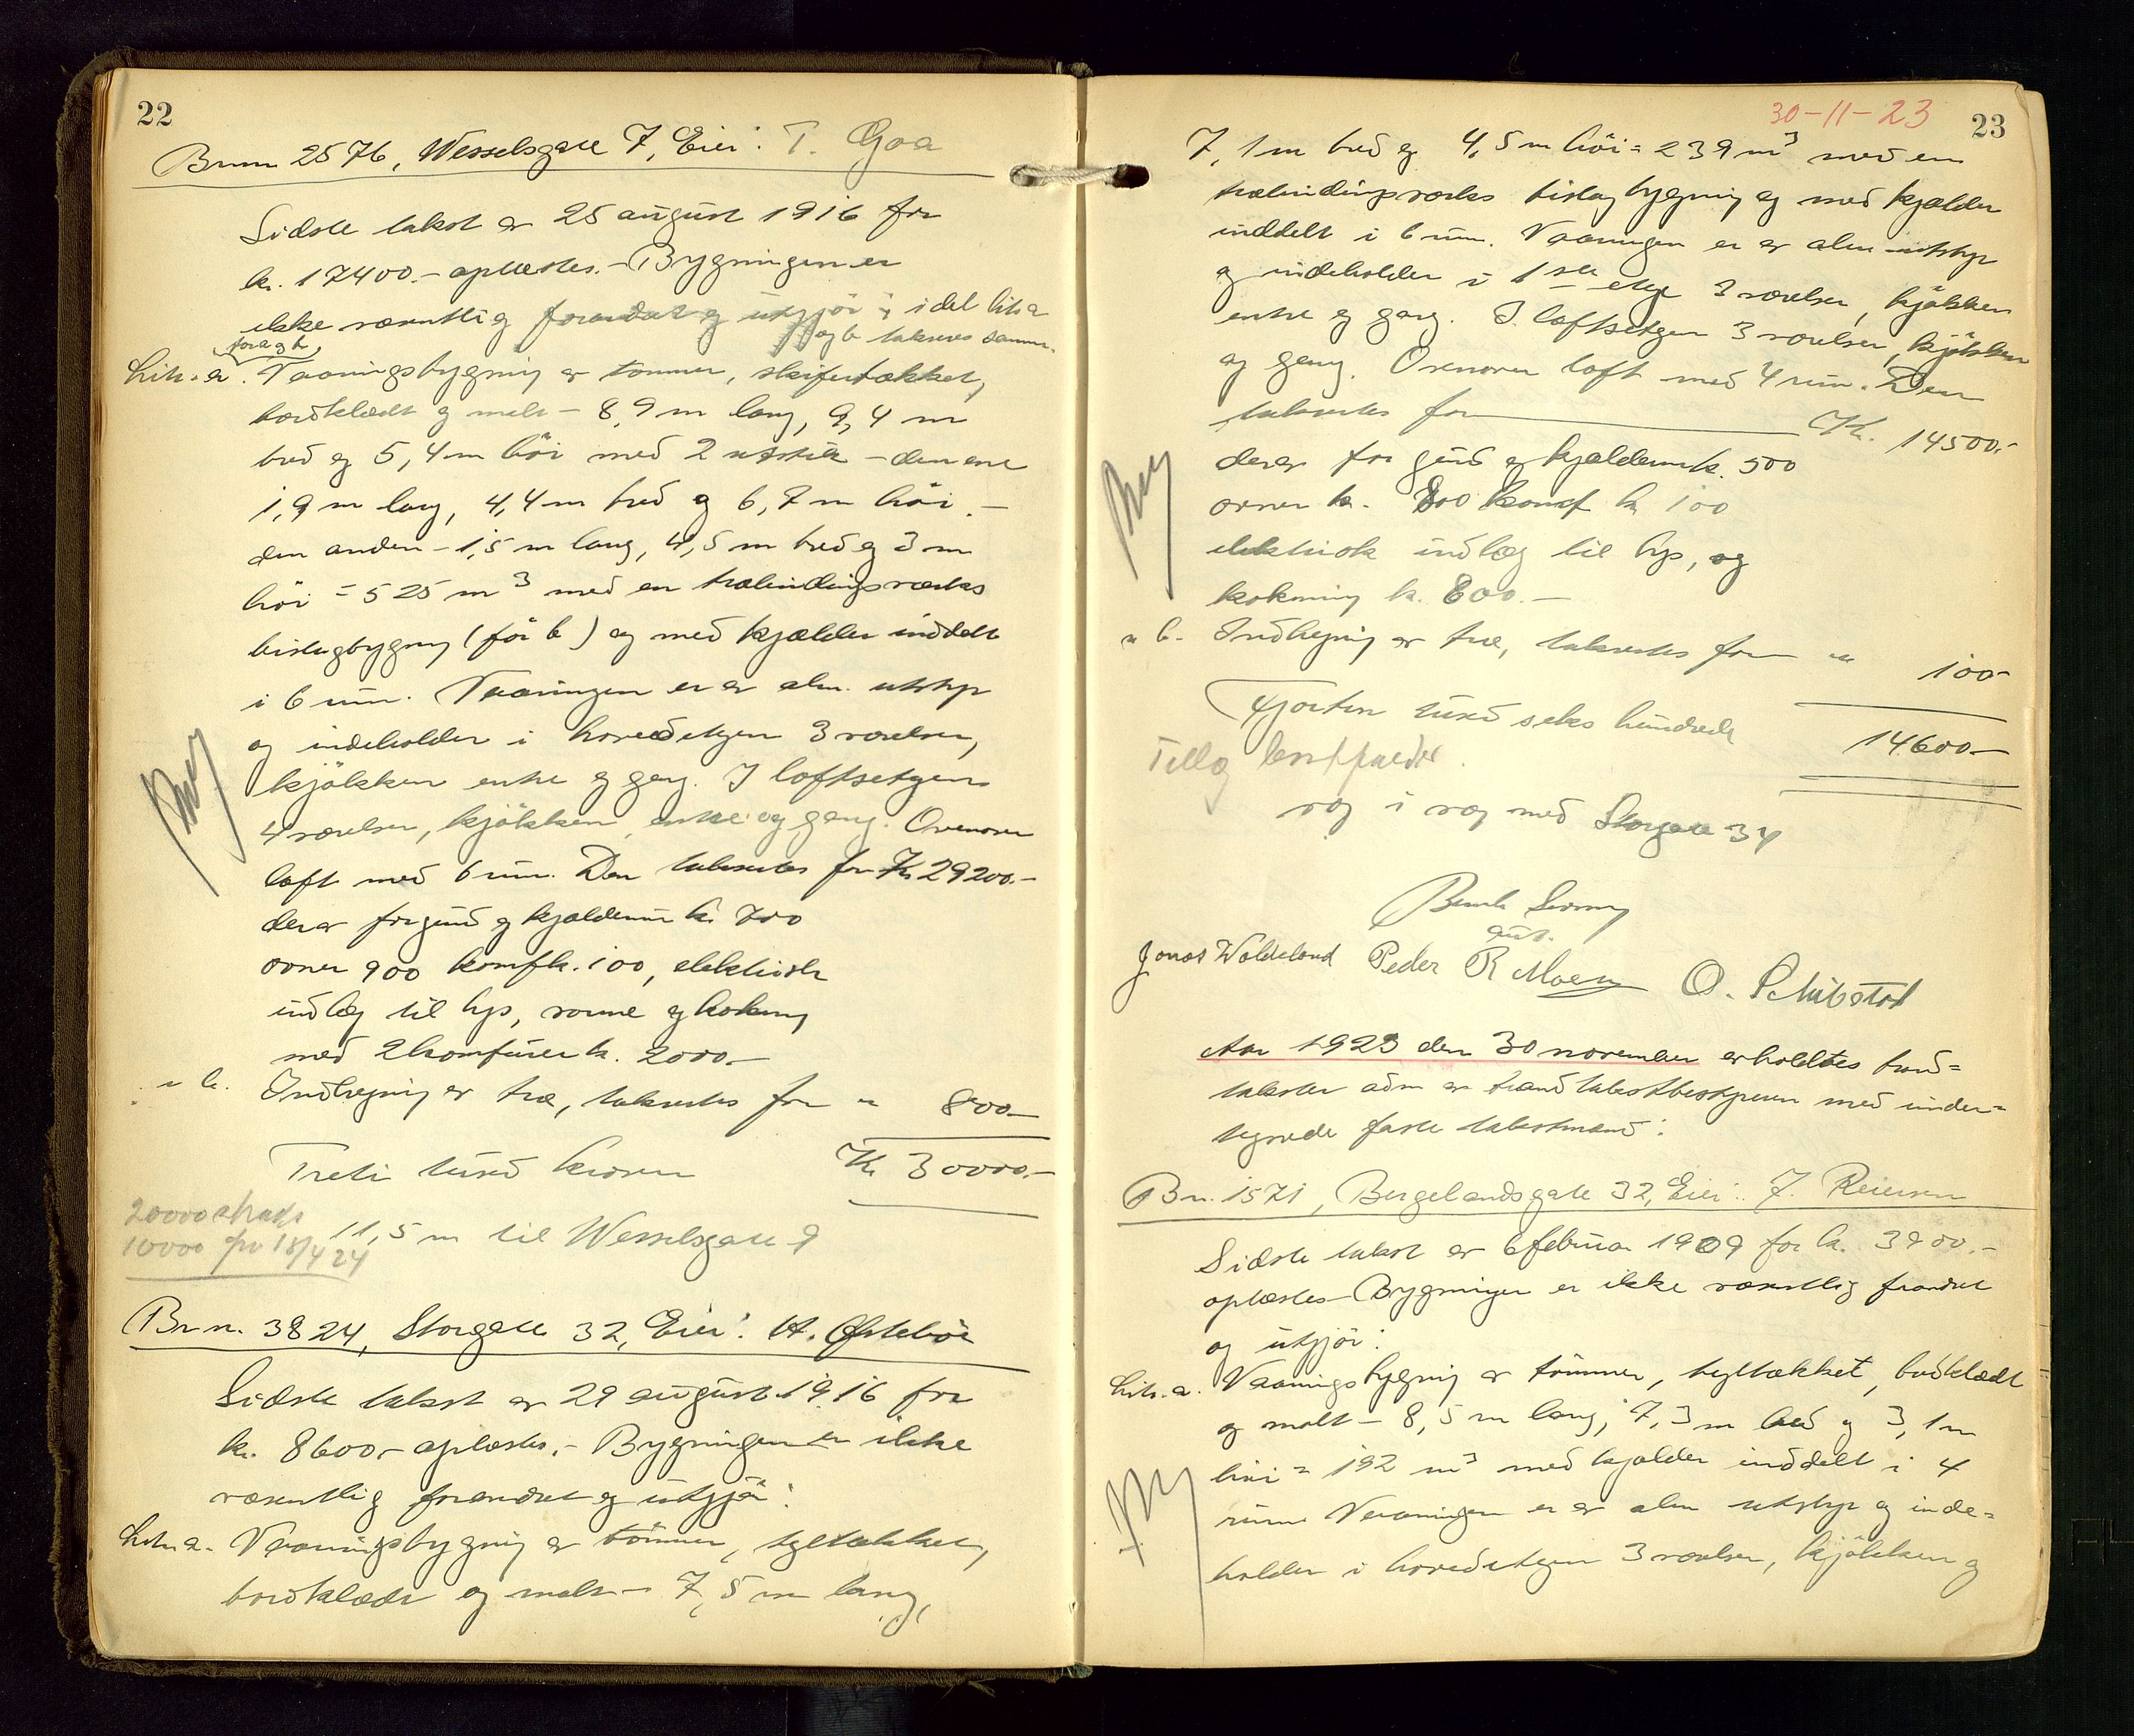 22
Brnr. 2576, Wesselsgate 7, Eier: T. Goa
Sidste takst er 25 august 1916 for
kr. 17400.- oplæstes. - Bygningen er
ikke væsentlig forandret og utgjør : idet litr a
og b takseres samm.
før a og b
Litr. a. Vaaningsbygning av tømmer, skifertækket,
bordklædt og malt - 8,9 m lang, 9,4 m
bred og 5,4 m høi med 2 utstik - den ene
1,9 m lang, 4,4 m bred og 6,7 m høi. -
den anden - 1,5 m lang, 4,5 m bred og 3 m
høi = 525 m³ med en træbindingsverks
bislagbygning (før b) og med kjælder inddelt
i 6 rum. Vaaningen er av alm. utstyr
og indeholder i hovedetagen 3 værelser,
kjøkken entre og gang. I loftsetagen
4 værelser, kjøkken, entre og gang. Ovenover
loft med 6 rum. Den takseres for Kr 29200.-
derav for grund og kjælderrum kr. 700
ovner 900 komf kr. 100, elektrisk
indlæg til lys, varme og kokning
med 2 komfurer kr. 2000.-
" b. Indhegning av træ, takseres for " 800.-
Treti tusend kroner Kr 30000.-
20000 straks
10000 fra 15/4 24
11,5 m til Wesselsgate 9
Brnr. 3824, Storgate 32, Eier: A. Østebø
Sidste takst er 29 august 1916 for
kr. 8600.- oplæstes. - Bygningen er ikke
væsentlig forandret og utgjør:
Litr a. Vaaningsbygning av tømmer, tegltækket,
bordklædt og malt - 7,5 m lang,
30-11-23
23
7,1 m bred og 4,5 m høi = 239 m³ med en
træbindingsverks bislagbygning og med kjælder
inddelt i 6 rum. Vaaningen er av alm utstyr
og indeholder i 1ste etage 3 værelser, kjøkken
entre og gang. I loftsetagen 3 værelser, kjøkken
og gang. Ovenover loft med 4 rum. Den
takseres for Kr. 14500.-
derav for grund og kjælderrum kr. 500
ovner kr. 800 komf kr 100
elektrisk indlæg til lys, og
kokning kr. 800.-
" b. Indhegning av træ, takseres for " 100-
Fjorten tusend seks hundrede 14600.-
Tillæg
væg i væg med Storgate 34
Jonas Woldeland Peder R Moen O. Schibstad
Aar 1923 den 30 november avholdtes brand=
takster adm av brandtakstbestyreren med under=
tegnede faste takstmænd:
Brn. 1571, Bergelandsgate 32, Eier: J. Reiersen
Sidste takst er 6 februar 1909 for kr. 3900.-
oplæstes - Bygningen er ikke væsentlig forandret
og utgjør:
Litr. a. Vaaningsbygning av tømmer, tegltækket, bordklædt
og malt - 8,5 m lang, 7,3 m bred og 3,1 m
høi = 192 m³ med kjælder inddelt i 4
rum. Vaaningen er av alm utstyr og inde=
holder i hovedetagen 3 værelser, kjøkken og